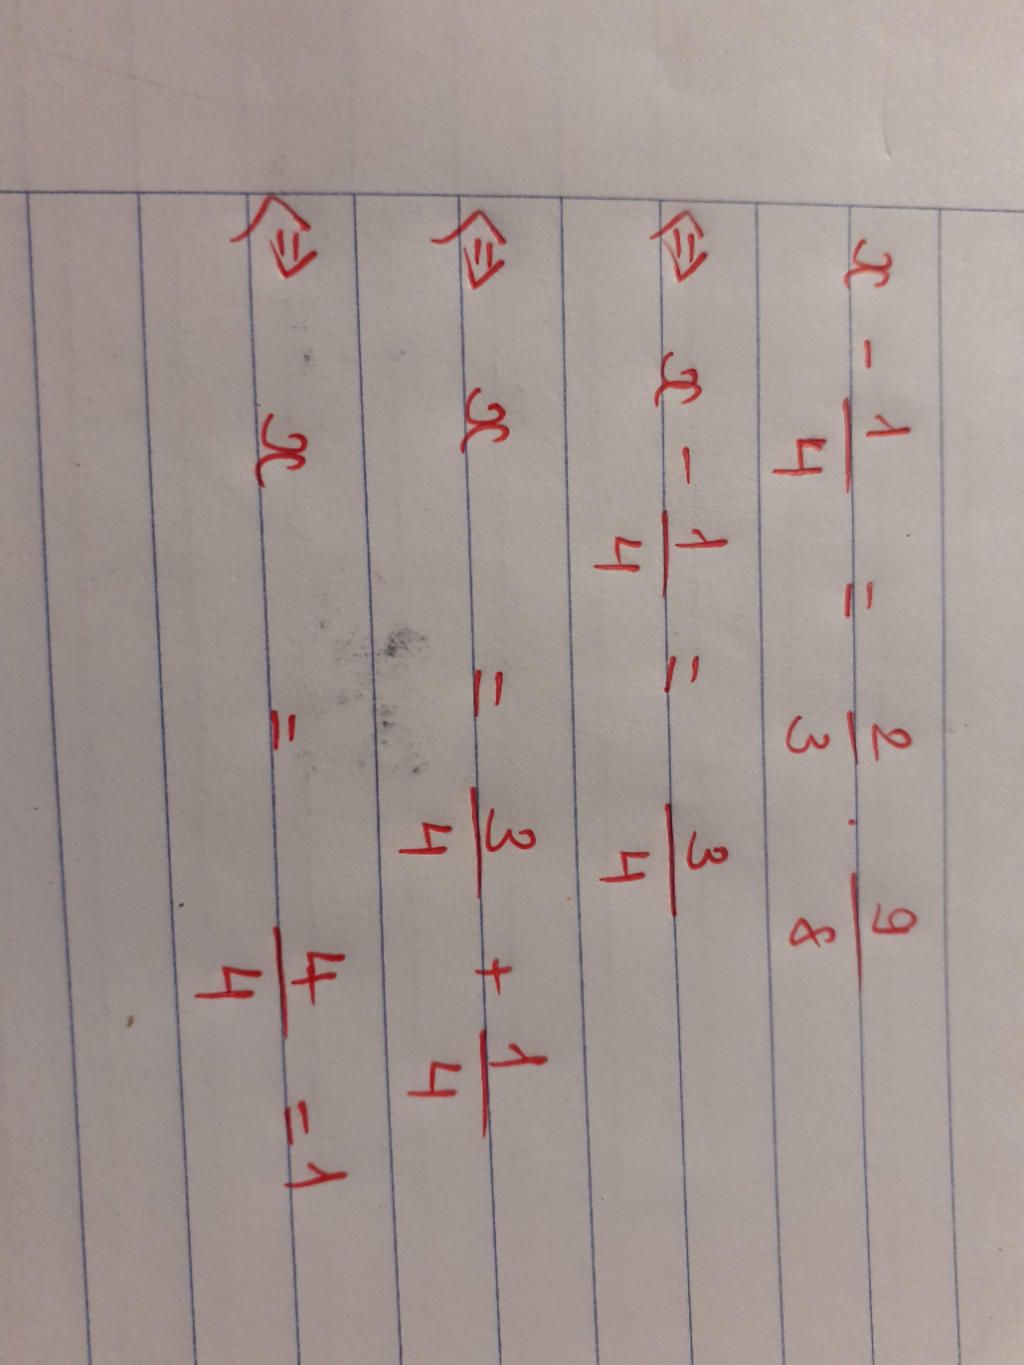 x - 1/4 = 2/3 . 9/8
⇔ x - 1/4 = 3/4
⇔ x = 3/4 + 1/4
⇔ x = 4/4 = 1